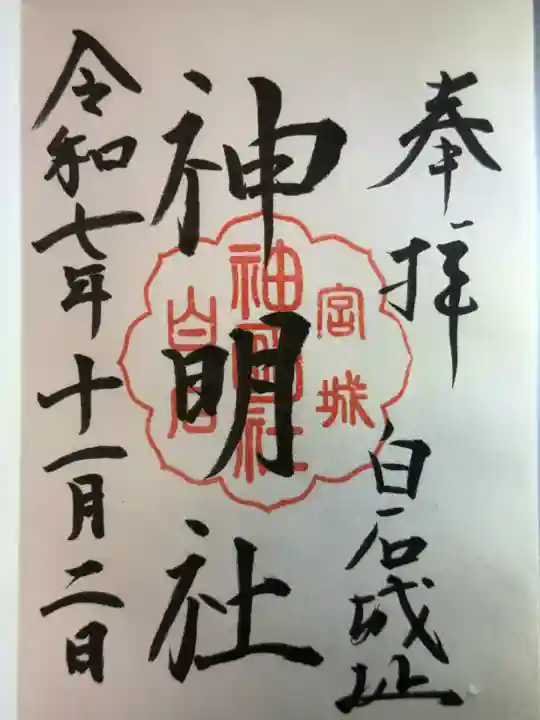 奉拝
白石城址
宮城
神明社
白石
神明社
令和七年十一月二日